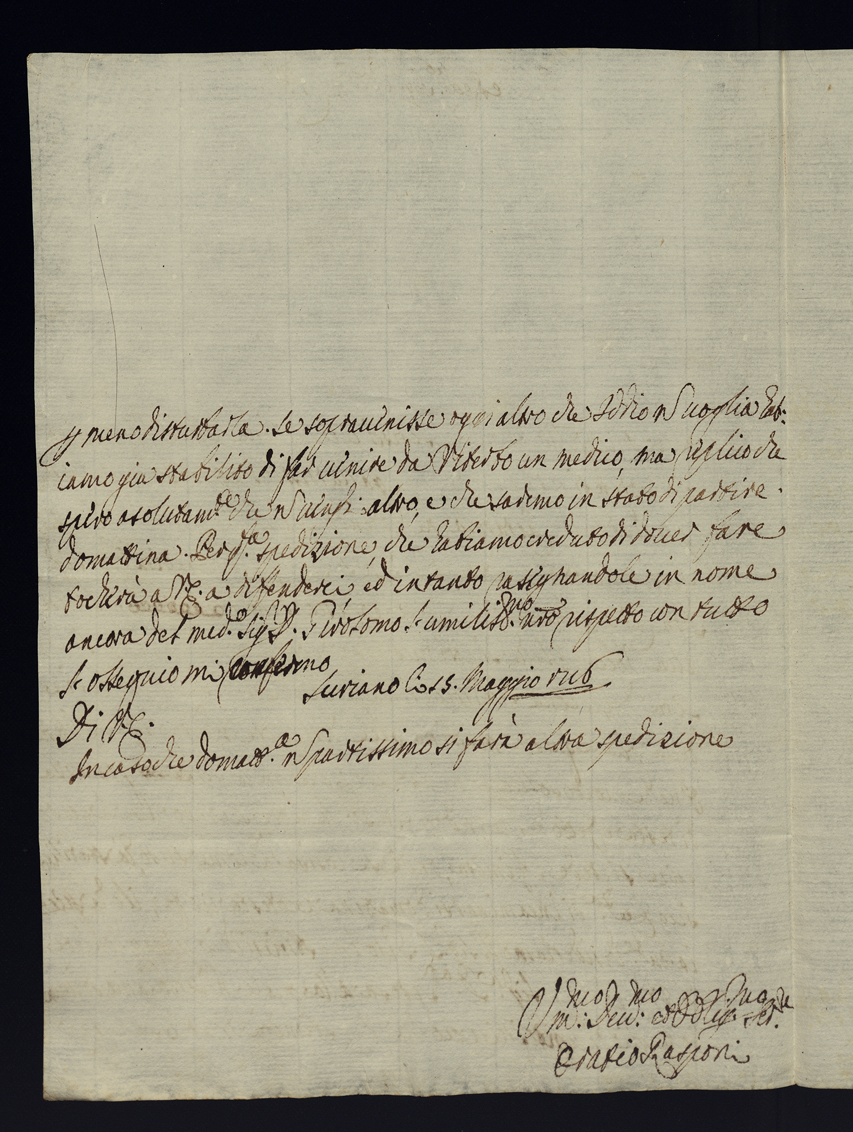 p meno disturbarla. Se sopravenisse ogni altro che Iddio n voglia hab:
iamo gia stabilito di far venire da Viterbo un medico, ma replico che
spero asolutamte che n altro, e che saremo in stato di partire
domattina. Per qta spedizione, che habiamo creduto di dover fare
tocherà a VE. a diffenderci, ed intanto rasignandole in nome
ancora del medo Sigr D. Girolomo l'umilissmo nro rispetto con tutto
l'ossequio mi confermo
Suriano li 15. Maggio 1716
Di VE.
In caso che domatta n partissimo si farà altra spedizione
Vmo: Devmo: ed Obligmo Serre
Oratio Rasponi